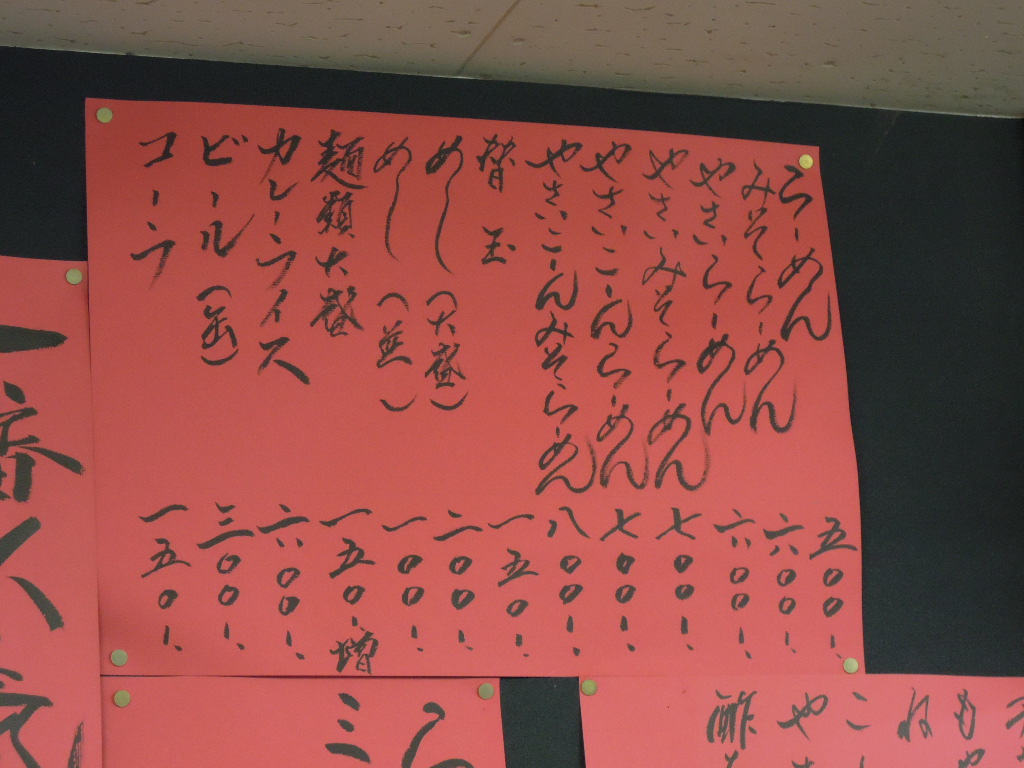 らーめん 五〇〇-
みそらーめん 六〇〇-
やさいらーめん 六〇〇-
やさいみそらーめん 七〇〇-
やさいこーんらーめん 七〇〇-
やさいこーんみそらーめん 八〇〇-
替玉 一五〇-
めし(大盛) 二〇〇-
めし(並) 一〇〇-
麺類大盛 一五〇-増
カレーライス 六〇〇-
ビール(缶) 三〇〇-
コーラ 一五〇-
一番人気
もや
ね
こ
や
酢
ミ